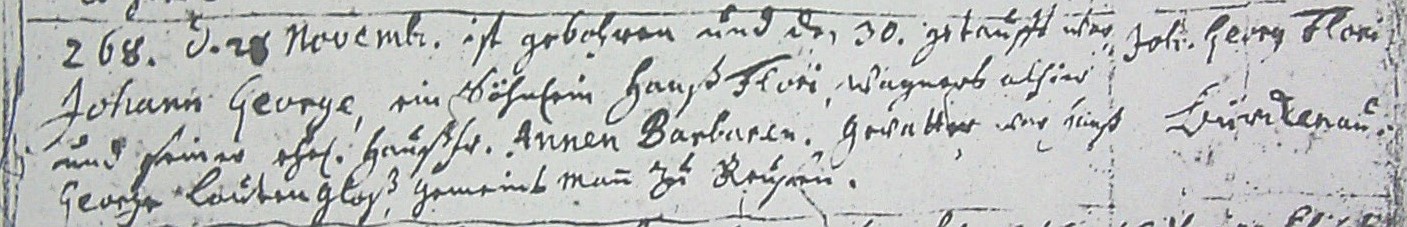 268. d. 28 Novembr. ist gebohren und den 30. getaufft wor. Joh. Georg Flori
Johann George, ein Söhnlein Hanß Flori, Wagners alhier
und seiner ehel. Haußfr. Annen Barbaren. Gevatter war Hanß Burckenau.
George Lautengloß Gemeinsmañ zu Reußen.